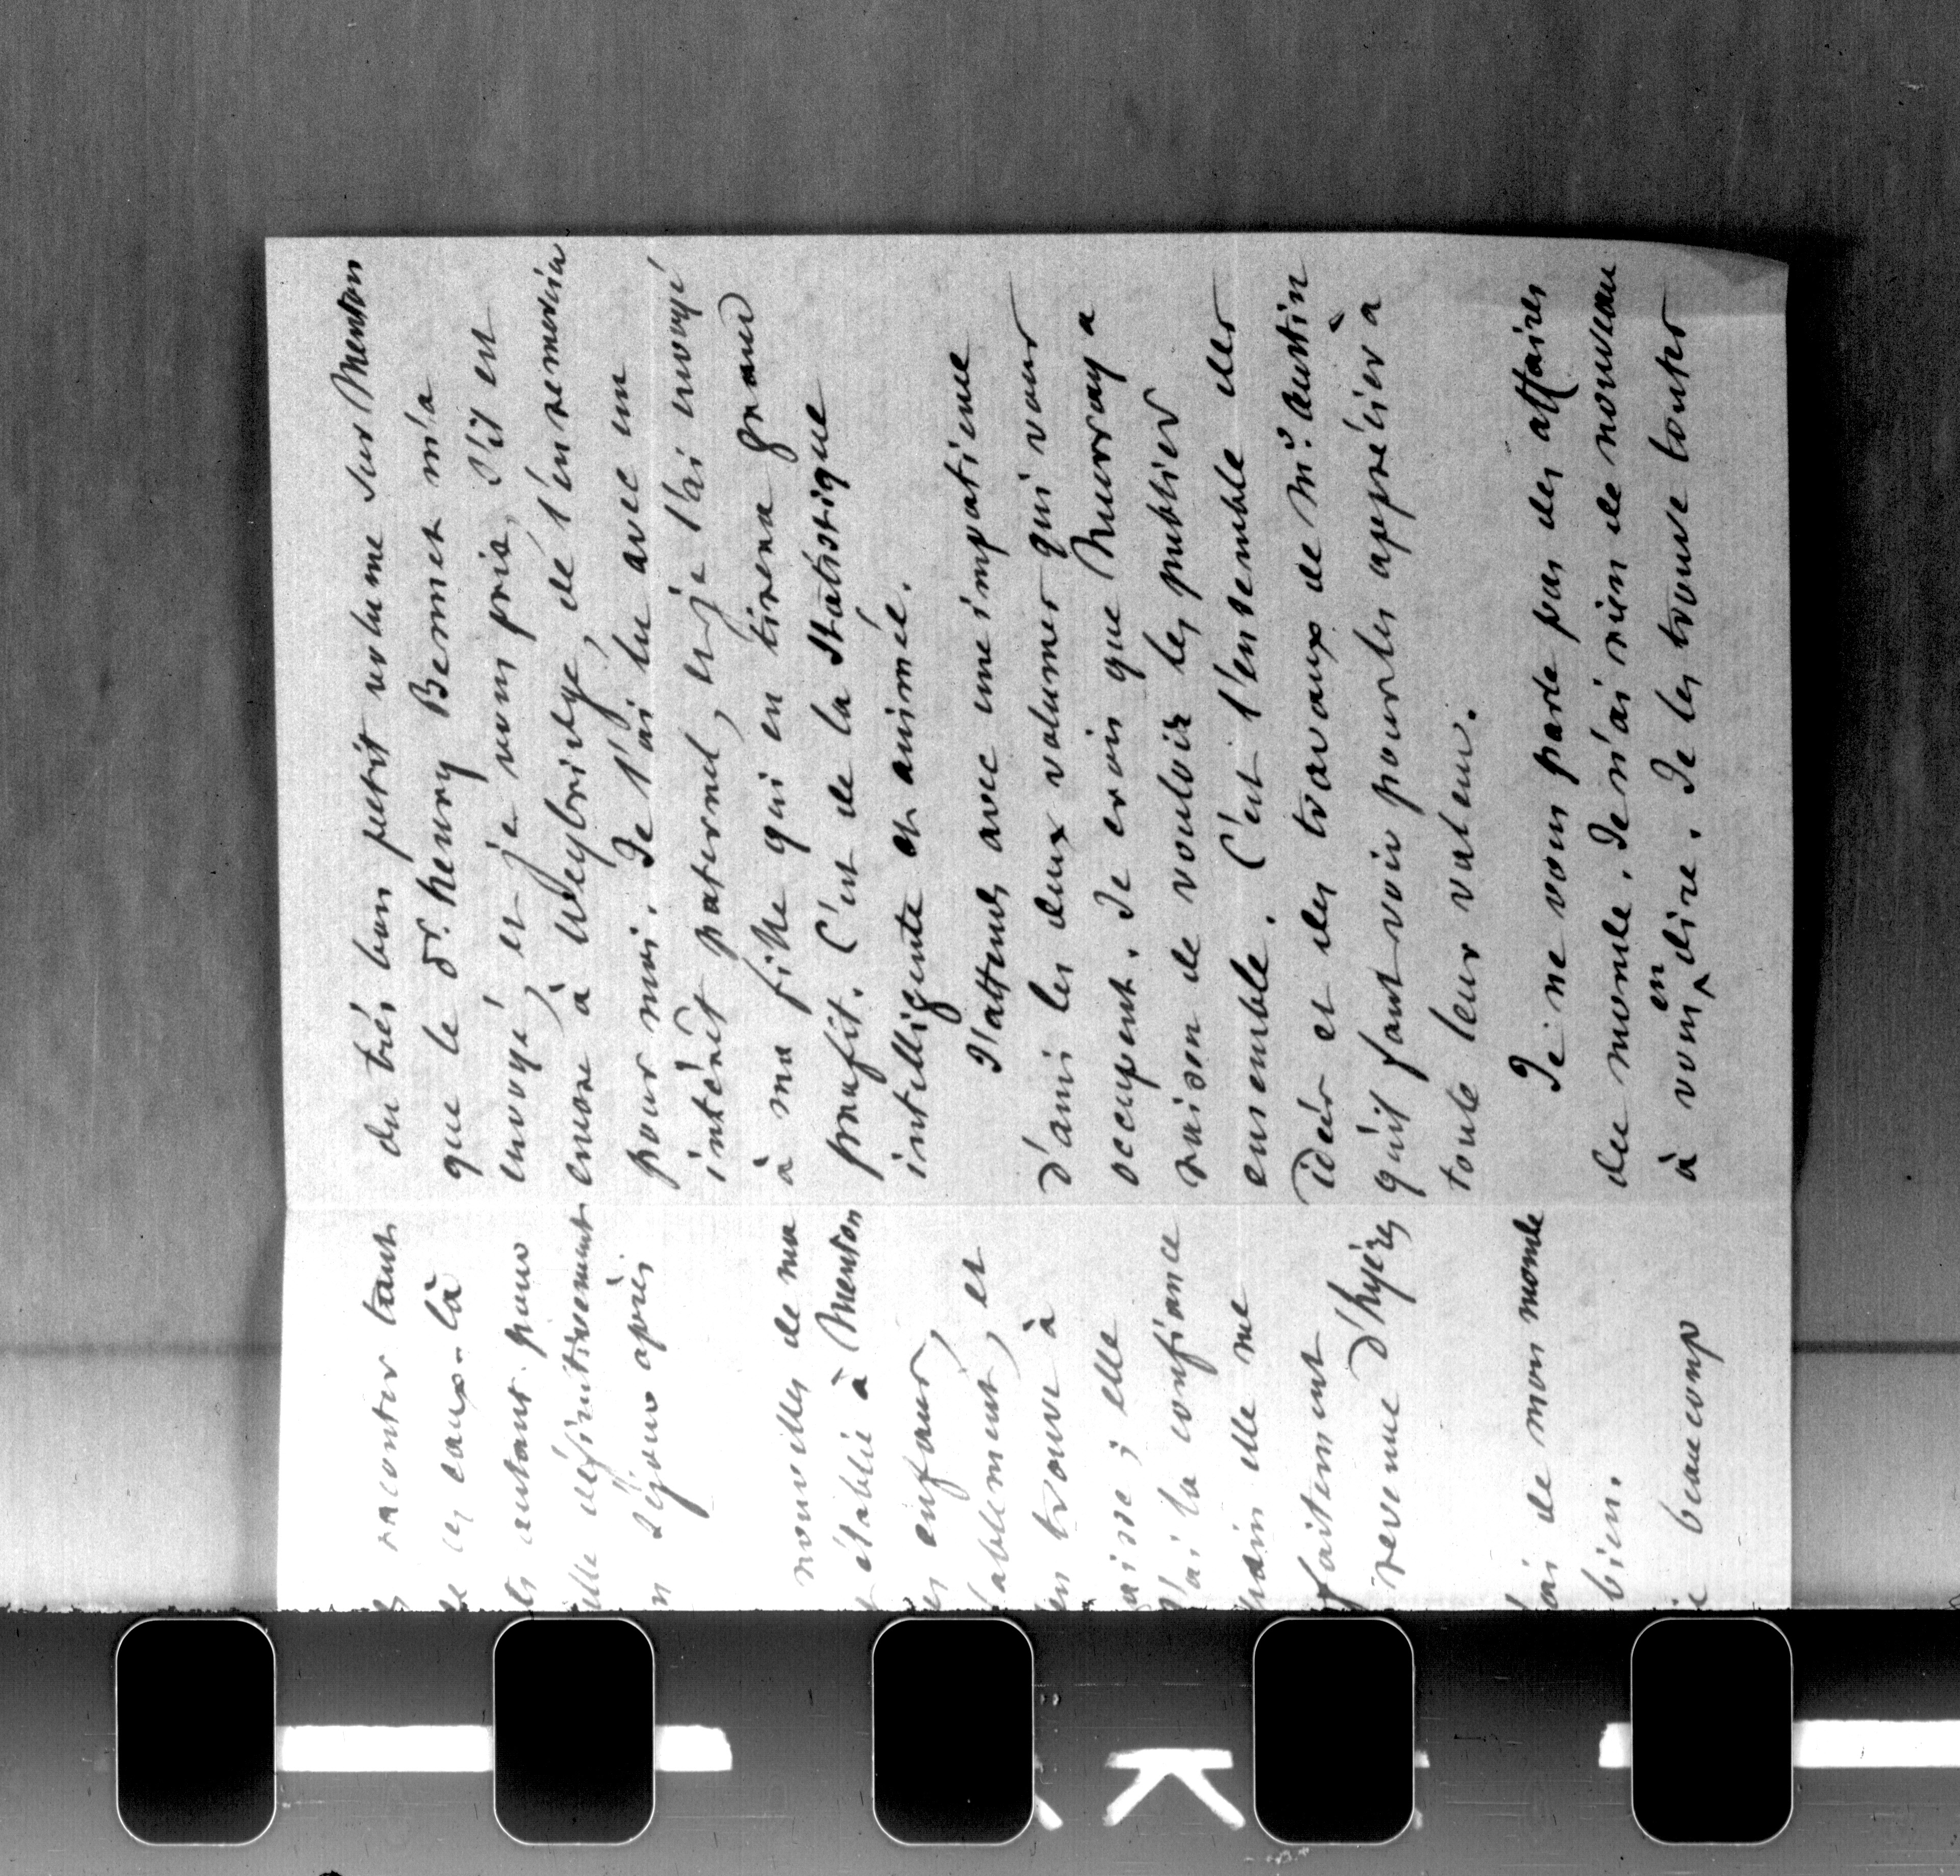 raconter tant
ces eaux-là
autant pour
elle définitivement
séjour après
nouvelles de ma
établie à Menton
enfans, et
ablement, et
trouve à
aise ; elle
J'ai la confiance
main elle me
faitement
revenue d'hyères
ai de mon monde
bien.
beaucoup
du très bon petit volume sur Menton
que le Dr. henry Bennet m'a
envoyé, et je vous prie, s'il est
encore à Weybridge, de l'en remercier
pour moi. Je l'ai lu avec un
intérêt paternel, et je l'ai envoyé
à ma fille qui en tirera grand
profit. C'est de la Statistique
intelligente et animée.
J'attends avec une impatience
d'ami les deux volumes qui vous
occupent. Je crois que Murray a
raison de vouloir les publier
ensemble. C'est l'ensemble des
idées et des travaux de Mr. Austin
qu'il faut voir pour les apprécier à
toute leur valeur.
Je ne vous parle pas des affaires
du monde. Je n'ai rien de nouveau
à vous en dire. Je les trouve toutes